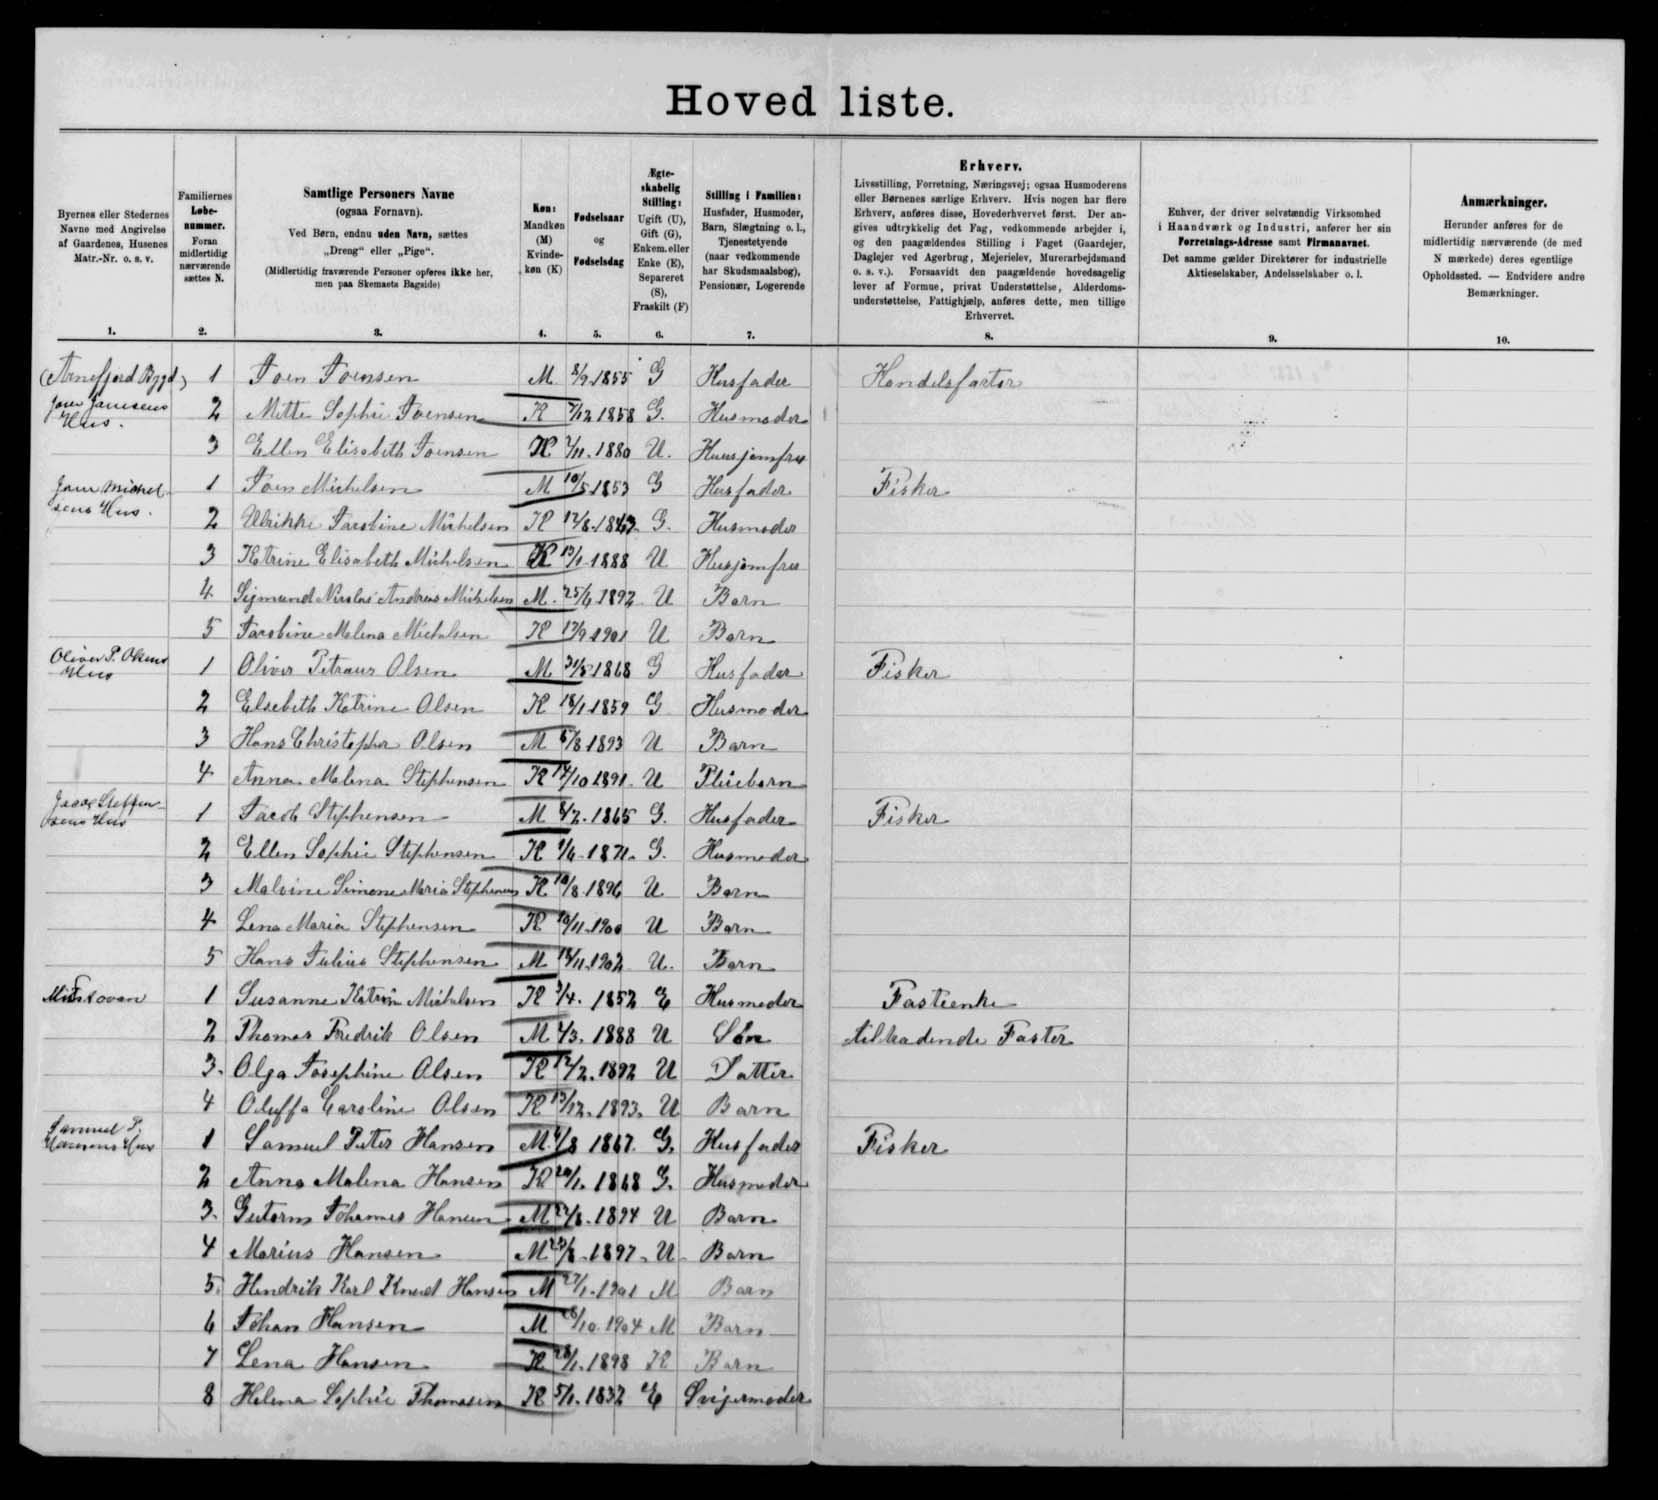 Hoved liste.
Byernes eller Stedernes
Navne med Angivelse
af Gaardenes, Husenes
Matr.-Nr. o. s. v.
1.
Familiernes
Løbe-
nummer.
Foran
midlertidig
nærværende
sættes N.
2.
Samtlige Personers Navne
(ogsaa Fornavn).
Ved Børn, endnu uden Navn, sættes
„Dreng“ eller „Pige“.
(Midlertidig fraværende Personer opføres ikke her,
men paa Skemaets Bagside)
3.
Køn:
Mandkøn
(M)
Kvinde-
køn (K)
4.
Fødselsaar
og
Fødselsdag
5.
Ægte-
skabelig
Stilling:
Ugift (U),
Gift (G),
Enkem. eller
Enke (E),
Separeret
(S),
Fraskilt (F)
6.
Stilling i Familien:
Husfader, Husmoder,
Barn, Slægtning o. l.,
Tjenestetyende
(naar vedkommende
har Skudsmaalsbog),
Pensionær, Logerende
7.
Erhverv.
Livsstilling, Forretning, Næringsvej; ogsaa Husmoderens
eller Børnenes særlige Erhverv. Hvis nogen har flere
Erhverv, anføres disse, Hovederhvervet først. Der an-
gives udtrykkelig det Fag, vedkommende arbejder i,
og den paagældendes Stilling i Faget (Gaardejer,
Daglejer ved Agerbrug, Mejerielev, Murerarbejdsmand
o. s. v.). Forsaavidt den paagældende hovedsagelig
lever af Formue, privat Understøttelse, Alderdoms-
understøttelse, Fattighjælp, anføres dette, men tillige
Erhvervet.
8.
Enhver, der driver selvstændig Virksomhed
i Haandværk og Industri, anfører her sin
Forretnings-Adresse samt Firmanavnet.
Det samme gælder Direktører for industrielle
Aktieselskaber, Andelsselskaber o. l.
9.
Anmærkninger.
Herunder anføres for de
midlertidig nærværende (de med
N mærkede) deres egentlige
Opholdssted. — Endvidere andre
Bemærkninger.
10.
(Arnefjord Bygd) 1 Joen Joensen M 8/9 1855 G Husfader Handelsfaktor
Joen Joensens Hus. 2 Mitte Sophie Joensen K 7/12 1858 G. Husmoder
3 Ellen Elisabeth Joensen K 2/11 1880 U. Huusjomfru
Joen Michelsens Hus. 1 Joen Michelsen M 10/5 1853 G Husfader Fisker
2 Ulrikke Jacobine Michelsen K 12/8 G. Husmoder
3 Katrine Elisabeth Michelsen K 13/1 1888 U Husjomfru
4 Sigmund Nicolai Andreas Michelsen M. 1892 U Barn
5 Jacobine Malena Michelsen K 1901 U Barn
Oliver P. Olsens Hus 1 Oliver Petraus Olsen M 1868 G Husfader Fisker
2 Elsebeth Katrine Olsen K 18/1 1859 G Husmoder
3 Hans Christopher Olsen M 6/8 1893 U Barn
4 Anna Malena Stephensen K 14/10 1891. U Pleiebarn
Jacob Steffensens Hus 1 Jacob Stephensen M 1865 G. Husfader Fisker
2 Ellen Sophie Stephensen K 1871. G. Husmoder
3 Malvine Simone Maria Stephensen K 10/8 1896 U Barn
4 Lena Maria Stephensen K 10/11 1900 U Barn
5 Hans Julius Stephensen M 18/11 1902 U. Barn
1 Susanne Katrine Michelsen K 3/4. 1852 E Husmoder Fæsteenke
2 Thomas Fredrik Olsen M 4/3. 1888 U Søn tiltrædende Fæster
3. Olga Josephine Olsen K 12/2. 1892 U Datter
4 Oluffa Caroline Olsen K 13/12. 1893. U Barn
Samuel P. Hansens Hus 1 Samuel Peter Hansen M. 4/8 1867. G. Husfader Fisker
2 Anna Malena Hansen K 20/1. 1868 G. Husmoder
3. Gutorm Johannes Hansen M 1894 U Barn
4 Marius Hansen M. 1897. U Barn
5. Hendrik Karl Knud Hansen M 27/1. 1901 M Barn
6 Johan Hansen M 1904 M Barn
7 Lena Hansen K 28/1. 1898 K Barn
8 Helena Sophie Thomasen K 5/1. 1832 E Svigermoder